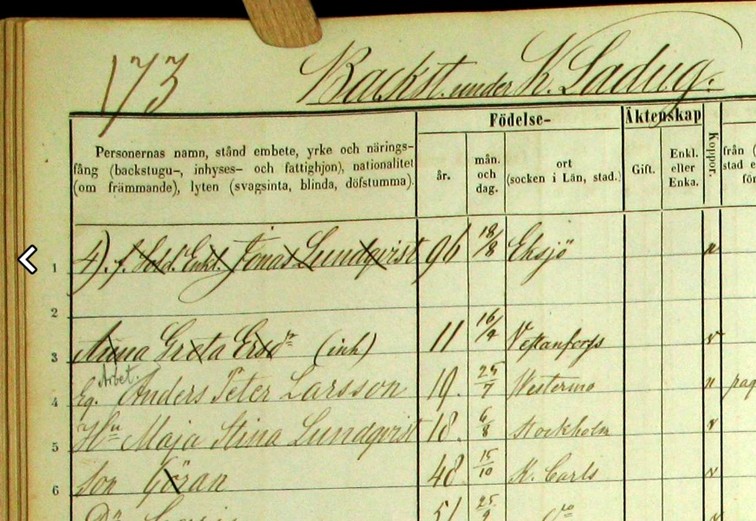 173 Backst. under K. Ladug.
Födelse- Äktenskap
Personernas namn, stånd embete, yrke och närings-
fång (backstugu-, inhyses- och fattighjon), nationalitet
(om främmande), lyten (svagsinta, blinda, döfstumma).
år.
mån.
och
dag.
ort
(socken i Län, stad.)
Gift.
Enkl.
eller
Enka.
Koppor.
från (
stad e
för
1 4). f. Sold. Enkl. Jonas Lundqvist 96 18/8 Eksjö n
2
3 Anna Greta Ersdr (inh) 11 16/9 Vestanfors v
Arbet.
4 Eg. Anders Peter Larsson 19. 25/7 n
5 Hu Maja Stina Lundqvist 18. 6/8 Stockholm v
6 Son Göran 48 15/10 K. Carls v
Dr 51 25